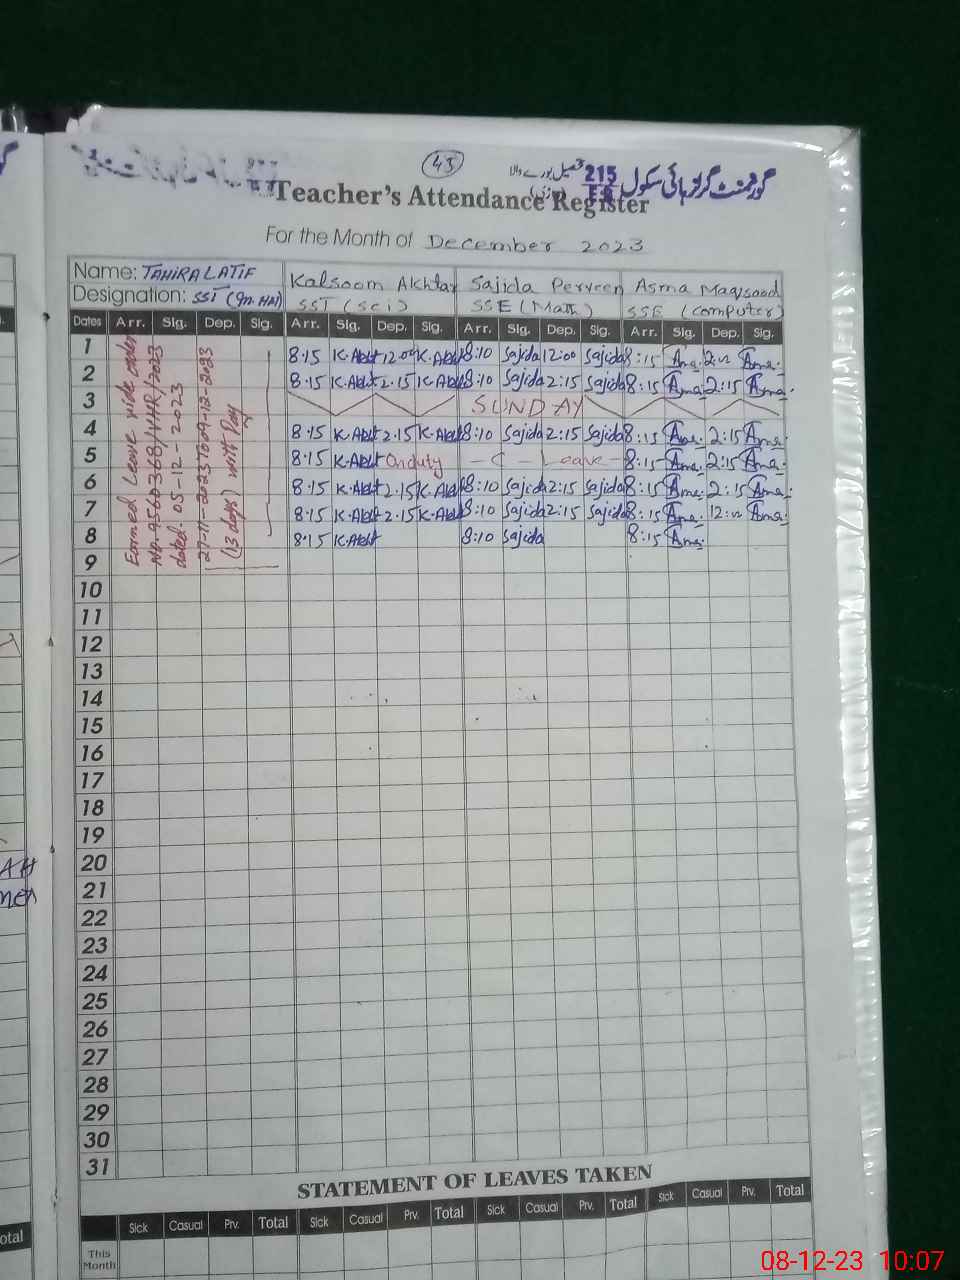 43
گورنمنٹ گرلز ہائی سکول 215 E.B
Teacher's Attendance Register
For the Month of December 2023
Name: TAHIRA LATIF Kalsoom Akhtar Sajida Perveen Asma Maqsood
Designation: SST SST (Sci) SSE (Math) SSE (Computer)
Dates Arr. Sig. Dep. Sig. Arr. Sig. Dep. Sig. Arr. Sig. Dep. Sig. Arr. Sig. Dep. Sig.
Earned Leave vide order
dated. 05-12-2023
(13 days) with Pay
1 8.15 K.Akht 12.00 K.Akht 8:10 Sajida 12:00 Sajida 8:15 Asma
2 8.15 K.Akht 2.15 K.Akht 8:10 Sajida 2:15 Sajida 8:15 Asma 2:15 Asma
3 SUNDAY
4 8.15 K.Akht 2.15 K.Akht 8:10 Sajida 2:15 Sajida 8:15 Asma 2:15 Asma
5 8.15 K.Akht Onduty - C - Leave - 8:15 Asma 2:15 Asma
6 8.15 K.Akht 2.15 K.Akht 8:10 Sajida 2:15 Sajida 8:15 Asma 2:15 Asma
7 8.15 K.Akht 2.15 K.Akht 8:10 Sajida 2:15 Sajida 8:15 Asma Asma
8 8.15 K.Akht 8:10 Sajida 8:15 Asma
9
10
11
12
13
14
15
16
17
18
19
20
21
22
23
24
25
26
27
28
29
30
31
STATEMENT OF LEAVES TAKEN
Sick Casual Prv. Total Sick Casual Prv. Total Sick Casual Prv. Total Sick Casual Prv. Total
This
Month
08-12-23 10:07